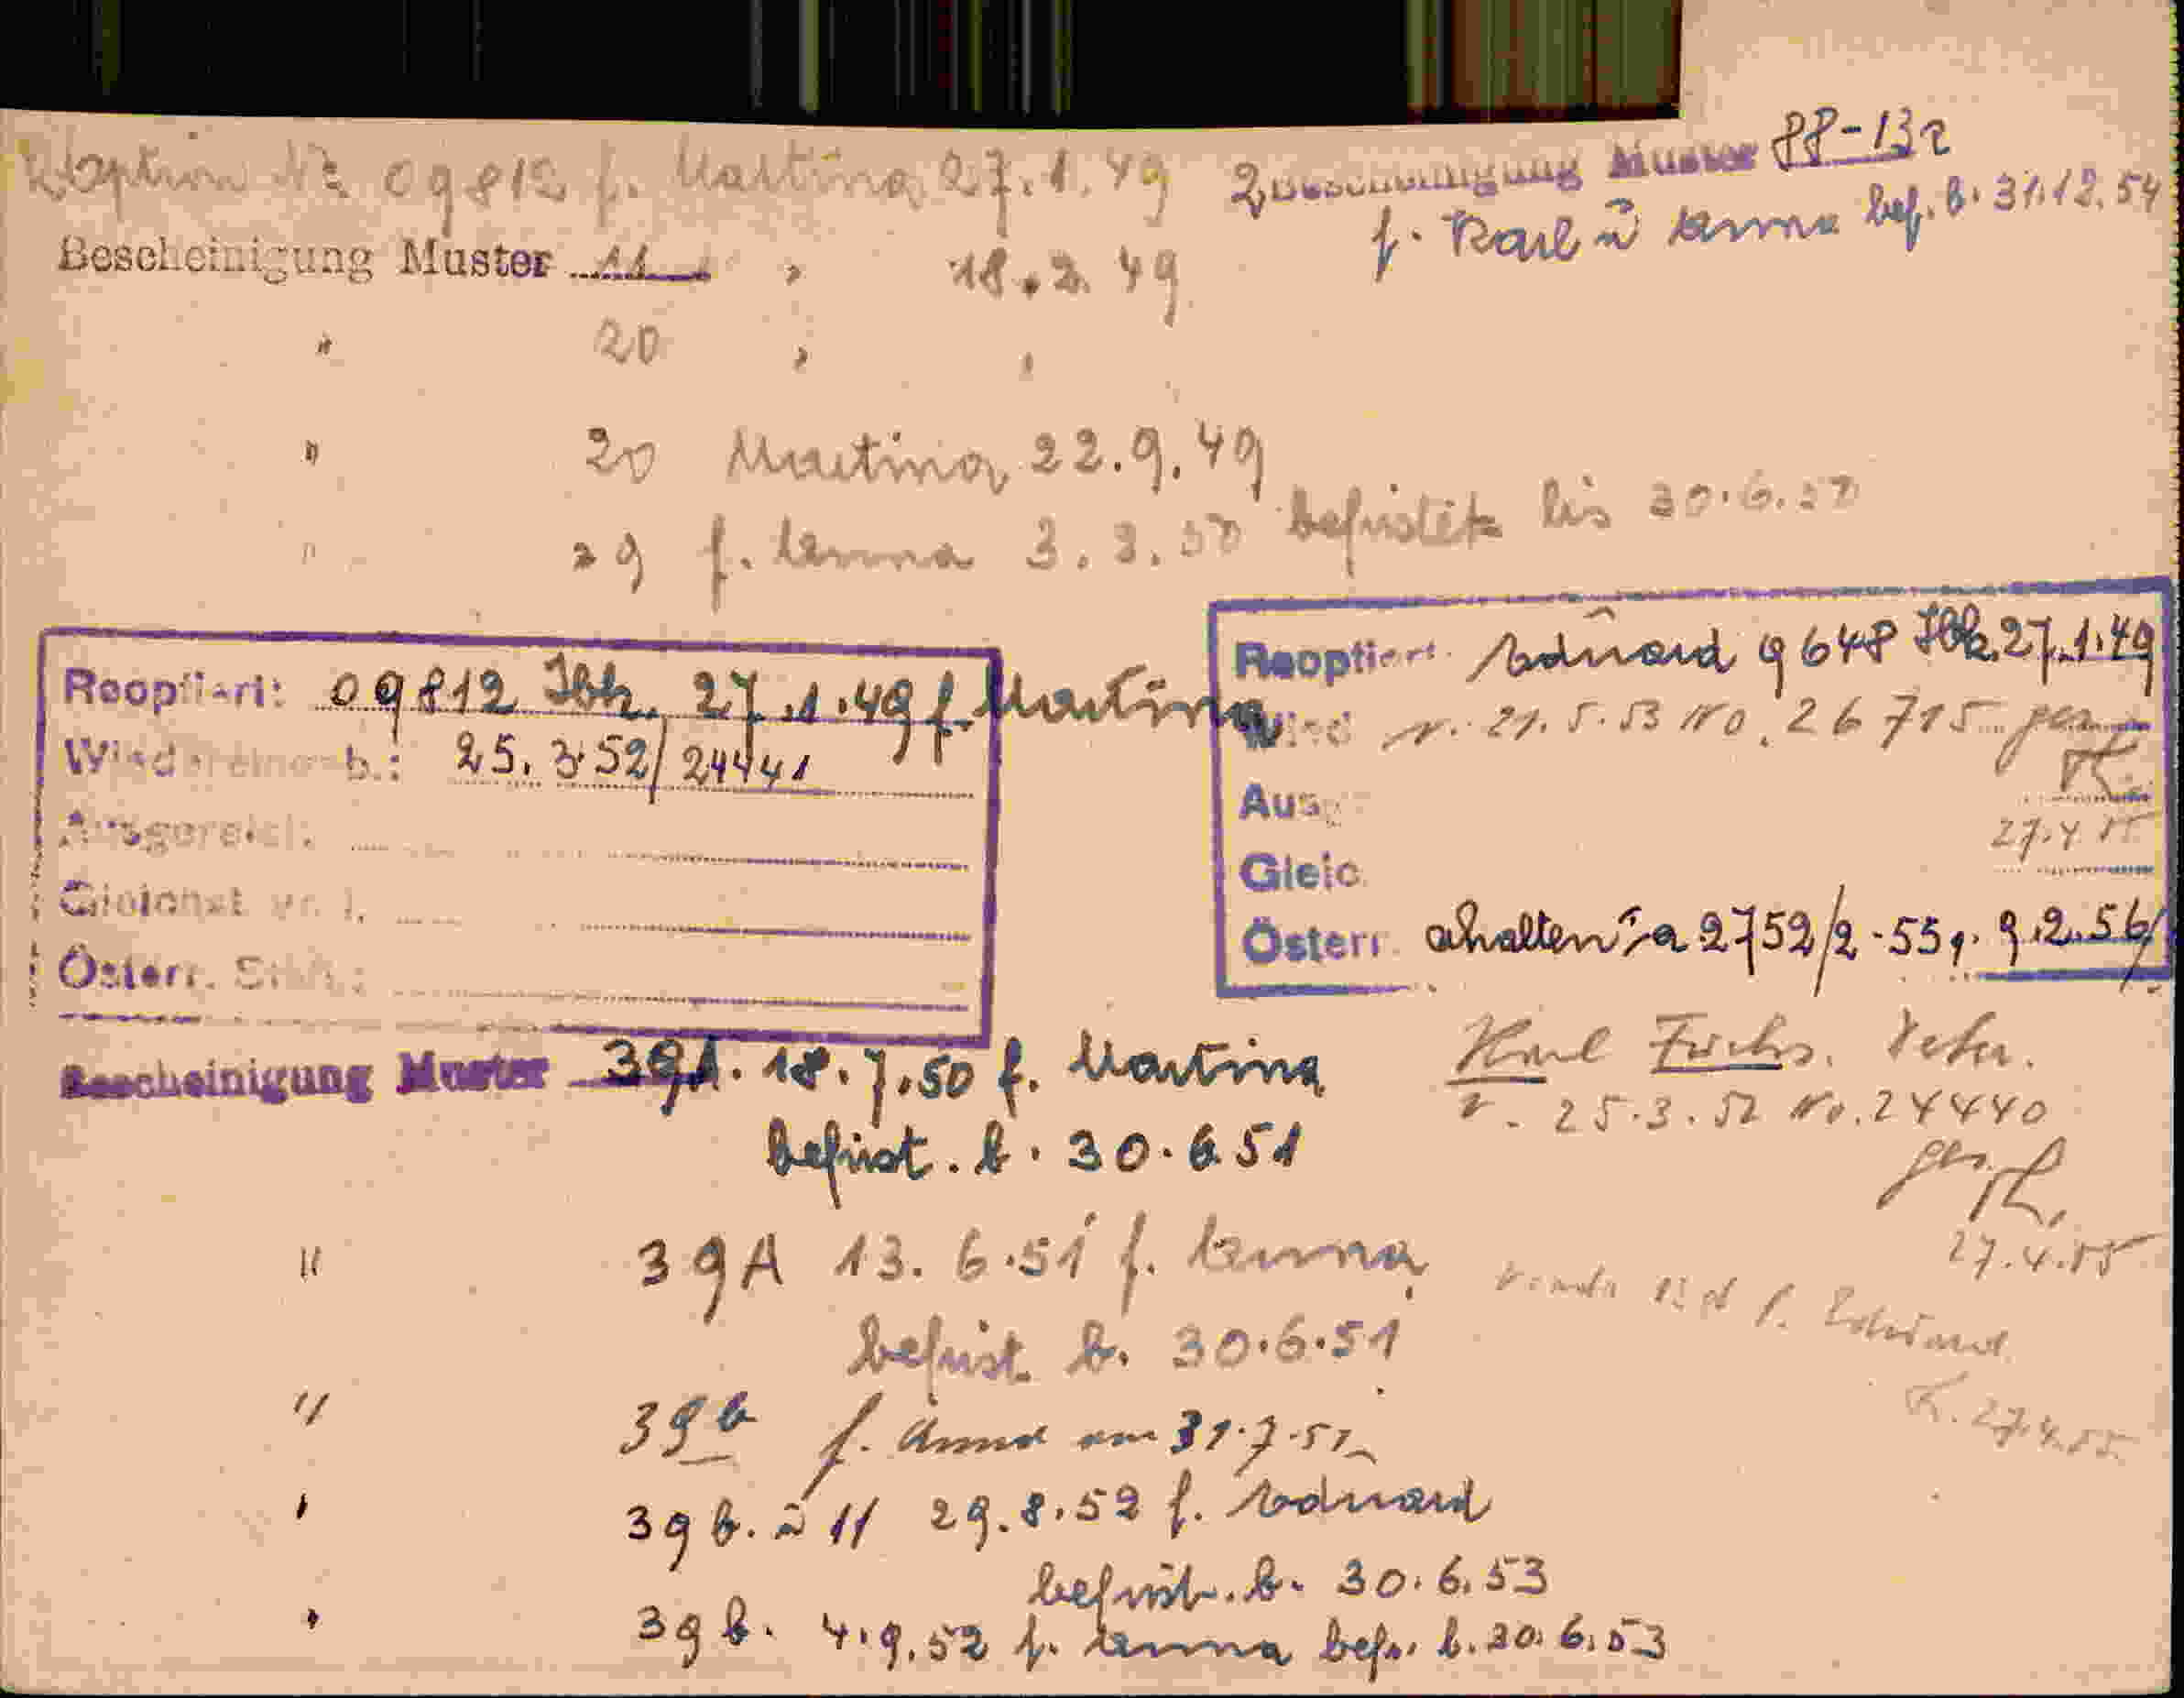 Reoption Nr. 09812 f. Martina 27.1.49
2 Bescheinigung Muster 88-132
f. Karl ū Anna bef. b. 31.12.54
Bescheinigung Muster 11 " 18.2.49
" 20 " "
" 20 Martina 22.9.49
" 29 f. Anna 3.3.50 befristet bis 30.6.50
Reoptiert: 09812 Ibk. 27.1.49 f. Martina
Wiedereinb.: 25.3.52/24441
Ausgereist:
Gleichst. v. l.
Österr. Stb.:
Reoptiert: Eduard 9648 Ibk. 27.1.49
Wied v. 21.5.53 No. 26715 ges.
27.4.55
Ausg
Gleic
Österr. erhalten Ia 2752/2-55 v. 9.2.56
Bescheinigung Muster 39A. 18.7.50 f. Martina
befrist. b. 30.6.51
Karl Fuchs.
v. 25.3.52 No. 24440
ges.
27.4.55
" 39A 13.6.51 f. Anna
befrist. b. 30.6.51
f. Eduard
27.4.55
" 39b f. Anna am 31.7.51
" 39b. ū 11 29.8.52 f. Eduard
befrist. b. 30.6.53
" 39b. 4.9.52 f. Anna befr. b. 30.6.53